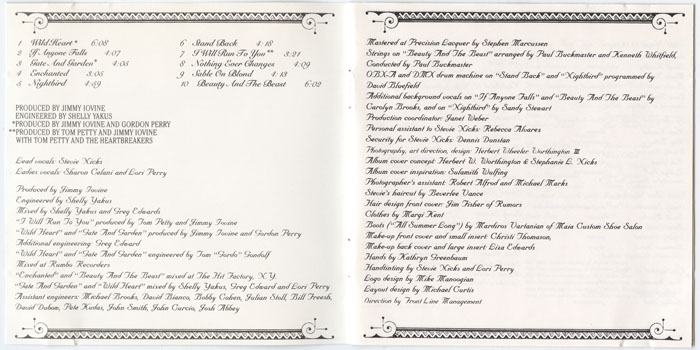 1 Wild Heart* 6:08
2 If Anyone Falls 4:07
3 Gate And Garden* 4:05
4 Enchanted 3:05
5 Nightbird 4:59
6 Stand Back 4:18
7 I Will Run To You** 3:21
8 Nothing Ever Changes 4:09
9 Sable On Blond 4:13
10 Beauty And The Beast 6:02
PRODUCED BY JIMMY IOVINE
ENGINEERED BY SHELLY YAKUS
*PRODUCED BY JIMMY IOVINE AND GORDON PERRY
**PRODUCED BY TOM PETTY AND JIMMY IOVINE
WITH TOM PETTY AND THE HEARTBREAKERS
Lead vocals: Stevie Nicks
Ladies vocals: Sharon Celani and Lori Perry
Produced by Jimmy Iovine
Engineered by Shelly Yakus
Mixed by Shelly Yakus and Greg Edwards
"I Will Run To You" produced by Tom Petty and Jimmy Iovine
"Wild Heart" and "Gate And Garden" produced by Jimmy Iovine and Gordon Perry
Additional engineering: Greg Edward
"Wild Heart" and "Gate And Garden" engineered by Tom "Gordo" Gondolf
Mixed at Rumbo Recorders
"Enchanted" and "Beauty And The Beast" mixed at The Hit Factory, N.Y.
"Gate And Garden" and "Wild Heart" mixed by Shelly Yakus, Greg Edward and Lori Perry
Assistant engineers: Michael Brooks, David Bianco, Bobby Cohen, Julian Stoll, Bill Freesh,
David Dubow, Pete Kudas, John Smith, John Curcio, Josh Abbey
Mastered at Precision Lacquer by Stephen Marcussen
Strings on "Beauty And The Beast" arranged by Paul Buckmaster and Kenneth Whitfield,
Conducted by Paul Buckmaster
OBX-A and DMX drum machine on "Stand Back" and "Nightbird" programmed by
David Bluefield
Additional background vocals on "If Anyone Falls" and "Beauty And The Beast" by
Carolyn Brooks, and on "Nightbird" by Sandy Stewart
Production coordinator: Janet Weber
Personal assistant to Stevie Nicks: Rebecca Alvares
Security for Stevie Nicks: Dennis Dunstan
Photography, art direction, design: Herbert Wheeler Worthington III
Album cover concept: Herbert W. Worthington & Stephanie L. Nicks
Album cover inspiration: Sulamith Wulfing
Photographer's assistant: Robert Alfred and Michael Marks
Stevie's haircut by Beverlee Vance
Hair design front cover: Jim Fisher of Rumors
Clothes by Margi Kent
Boots ("All Summer Long") by Mardiros Vartanian of Maia Custom Shoe Salon
Make-up front cover and small insert: Christi Thomason,
Make-up back cover and large insert: Liza Edwards
Hands by Kathryn Greenbaum
Handtinting by Stevie Nicks and Lori Perry
Logo design by Mike Manoogian
Layout design by Michael Curtis
Direction by Front Line Management